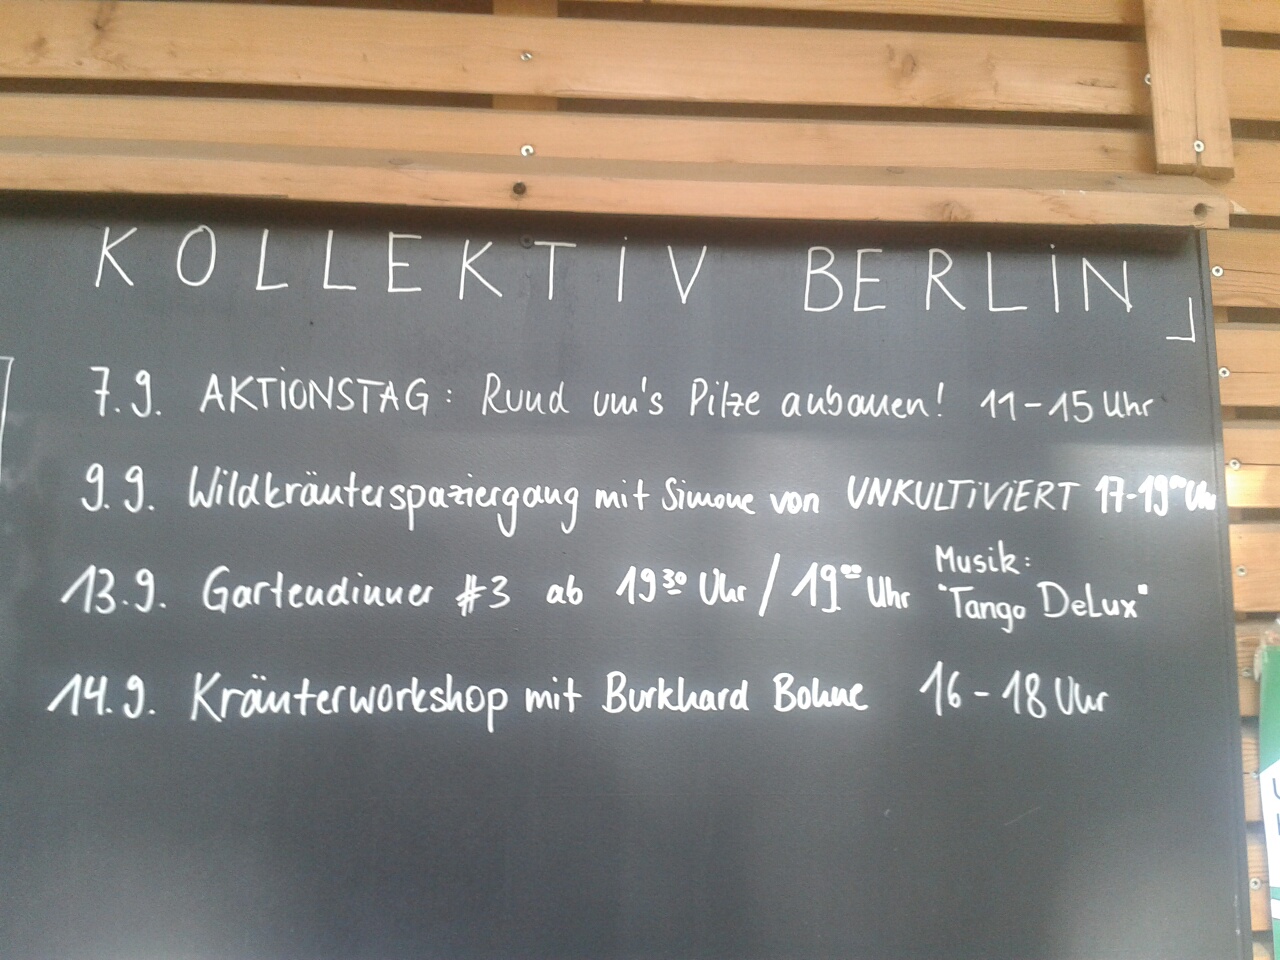 KOLLEKTiV BERLiN
7.9. AKTiONSTAG: Rund um's Pilze anbauen! 11-15 Uhr
9.9. Wildkräuterspaziergang mit Simone von UNKULTiViERT 17-19⁰⁰ Uhr
13.9. Gartendinner #3 ab 19³⁰ Uhr / 19⁰⁰ Uhr Musik:
"Tango DeLux"
14.9. Kräuterworkshop mit Burkhard Bohne 16-18 Uhr